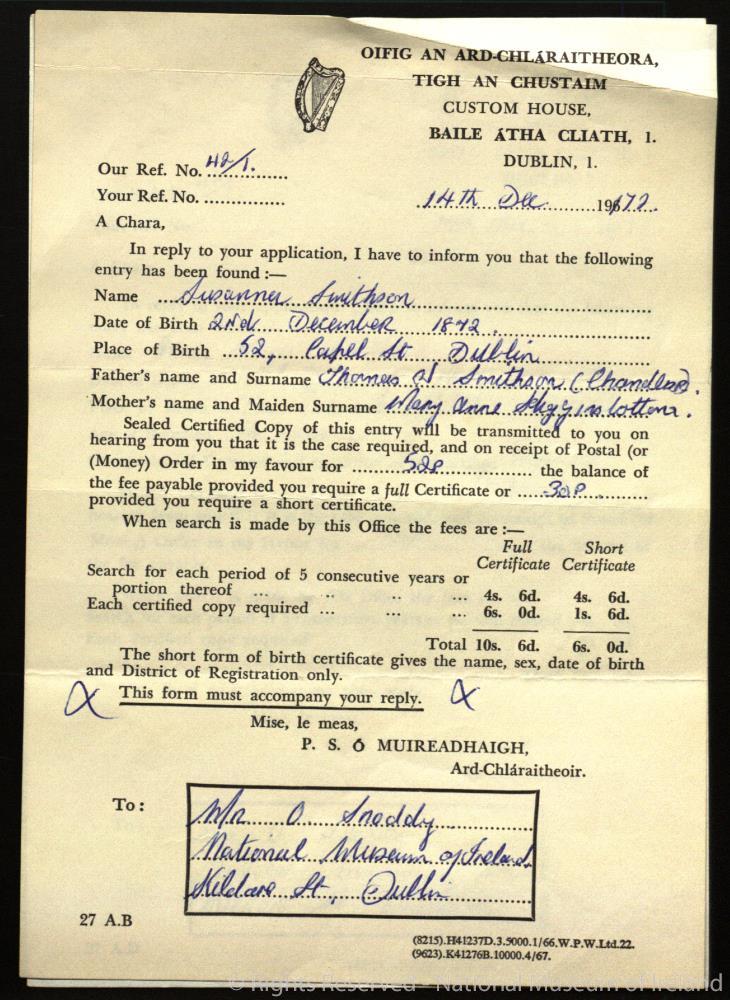 OIFIG AN ARD-CHLÁRAITHEORA,
TIGH AN CHUSTAIM
CUSTOM HOUSE,
BAILE ÁTHA CLIATH, 1.
DUBLIN, 1.
Our Ref. No. 42/1.
Your Ref. No. ...............
14th Dec 1972.
A Chara,
In reply to your application, I have to inform you that the following
entry has been found :—
Name Susanna Smithson
Date of Birth 2nd December 1872.
Place of Birth 52, Capel St Dublin
Father's name and Surname Thomas Smithson (Chandler).
Mother's name and Maiden Surname Mary Anne Higginbottom.
Sealed Certified Copy of this entry will be transmitted to you on
hearing from you that it is the case required, and on receipt of Postal (or
(Money) Order in my favour for 52p the balance of
the fee payable provided you require a full Certificate or 30p
provided you require a short certificate.
When search is made by this Office the fees are :—
Full Short
Certificate Certificate
Search for each period of 5 consecutive years or
portion thereof ... ... ... ... 4s. 6d. 4s. 6d.
Each certified copy required ... ... ... 6s. 0d. 1s. 6d.
Total 10s. 6d. 6s. 0d.
The short form of birth certificate gives the name, sex, date of birth
and District of Registration only.
X This form must accompany your reply. X
Mise, le meas,
P. S. Ó MUIREADHAIGH,
Ard-Chláraitheoir.
To :
Mr O. Snoddy
National Museum of Ireland
Kildare St, Dublin
27 A.B
(8215).H41237D.3.5000.1/66.W.P.W.Ltd.22.
(9623).K41276B.10000.4/67.
© Rights Reserved - National Museum of Ireland